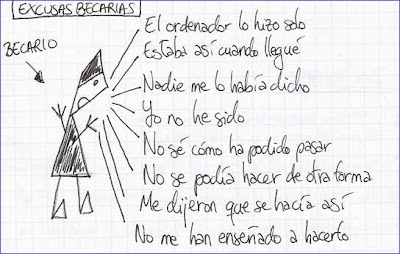 EXCUSAS BECARIAS
BECARIO
El ordenador lo hizo solo
Estaba así cuando llegué
Nadie me lo había dicho
Yo no he sido
No sé cómo ha podido pasar
No se podía hacer de otra forma
Me dijeron que se hacía así
No me han enseñado a hacerlo